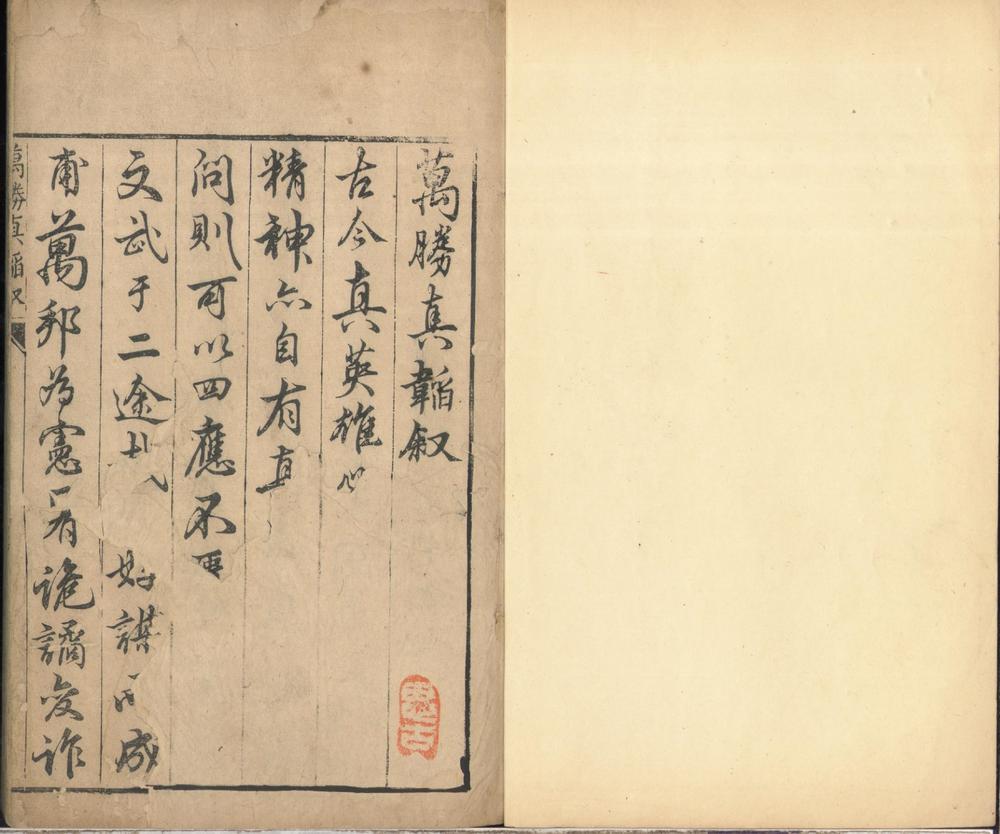 萬勝真韜叙
古今真英雄
精神亦自有真
問則可以四應不
文武于二途 好謀 成
甫萬邦為憲 有詭譎變詐
萬勝真韜叙